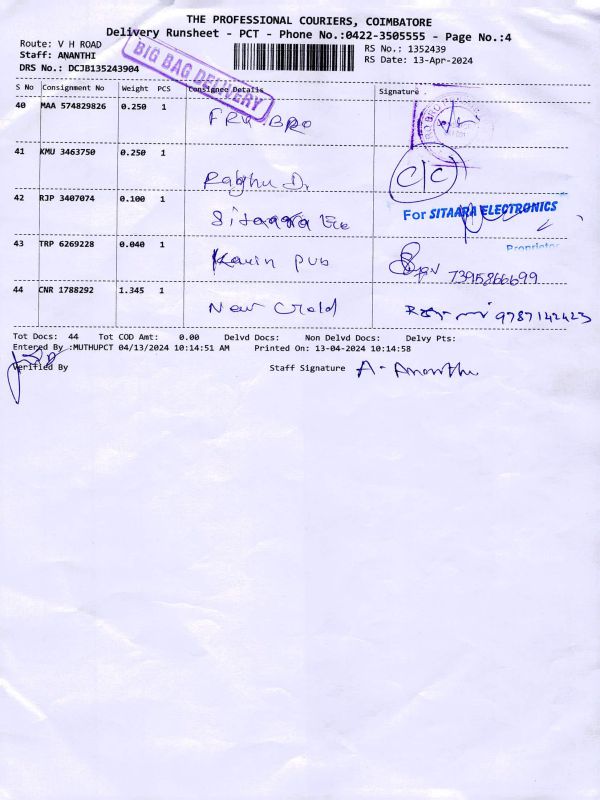 THE PROFESSIONAL COURIERS, COIMBATORE
Delivery Runsheet - PCT - Phone No.:0422-3505555 - Page No.:4
Route: V H ROAD
RS No.: 1352439
Staff: ANANTHI
RS Date: 13-Apr-2024
DRS No.: DCJB135243904
BIG BAG DELIVERY
S No Consignment No Weight PCS Consignee Details Signature
40 MAA 574829826 0.250 1
FRU BRO
41 KMU 3463750 0.250 1
Raghu D.
C/C
42 RJP 3407074 0.100 1
Sitaara Ele
For SITAARA ELECTRONICS
Proprietor
43 TRP 6269228 0.040 1
Kavin pub
7395866699
44 CNR 1788292 1.345 1
New Gold
9787142423
Tot Docs: 44 Tot COD Amt: 0.00 Delvd Docs: Non Delvd Docs: Delvy Pts:
Entered By :MUTHUPCT 04/13/2024 10:14:51 AM Printed On: 13-04-2024 10:14:58
Verified By
Staff Signature A. Ananthi